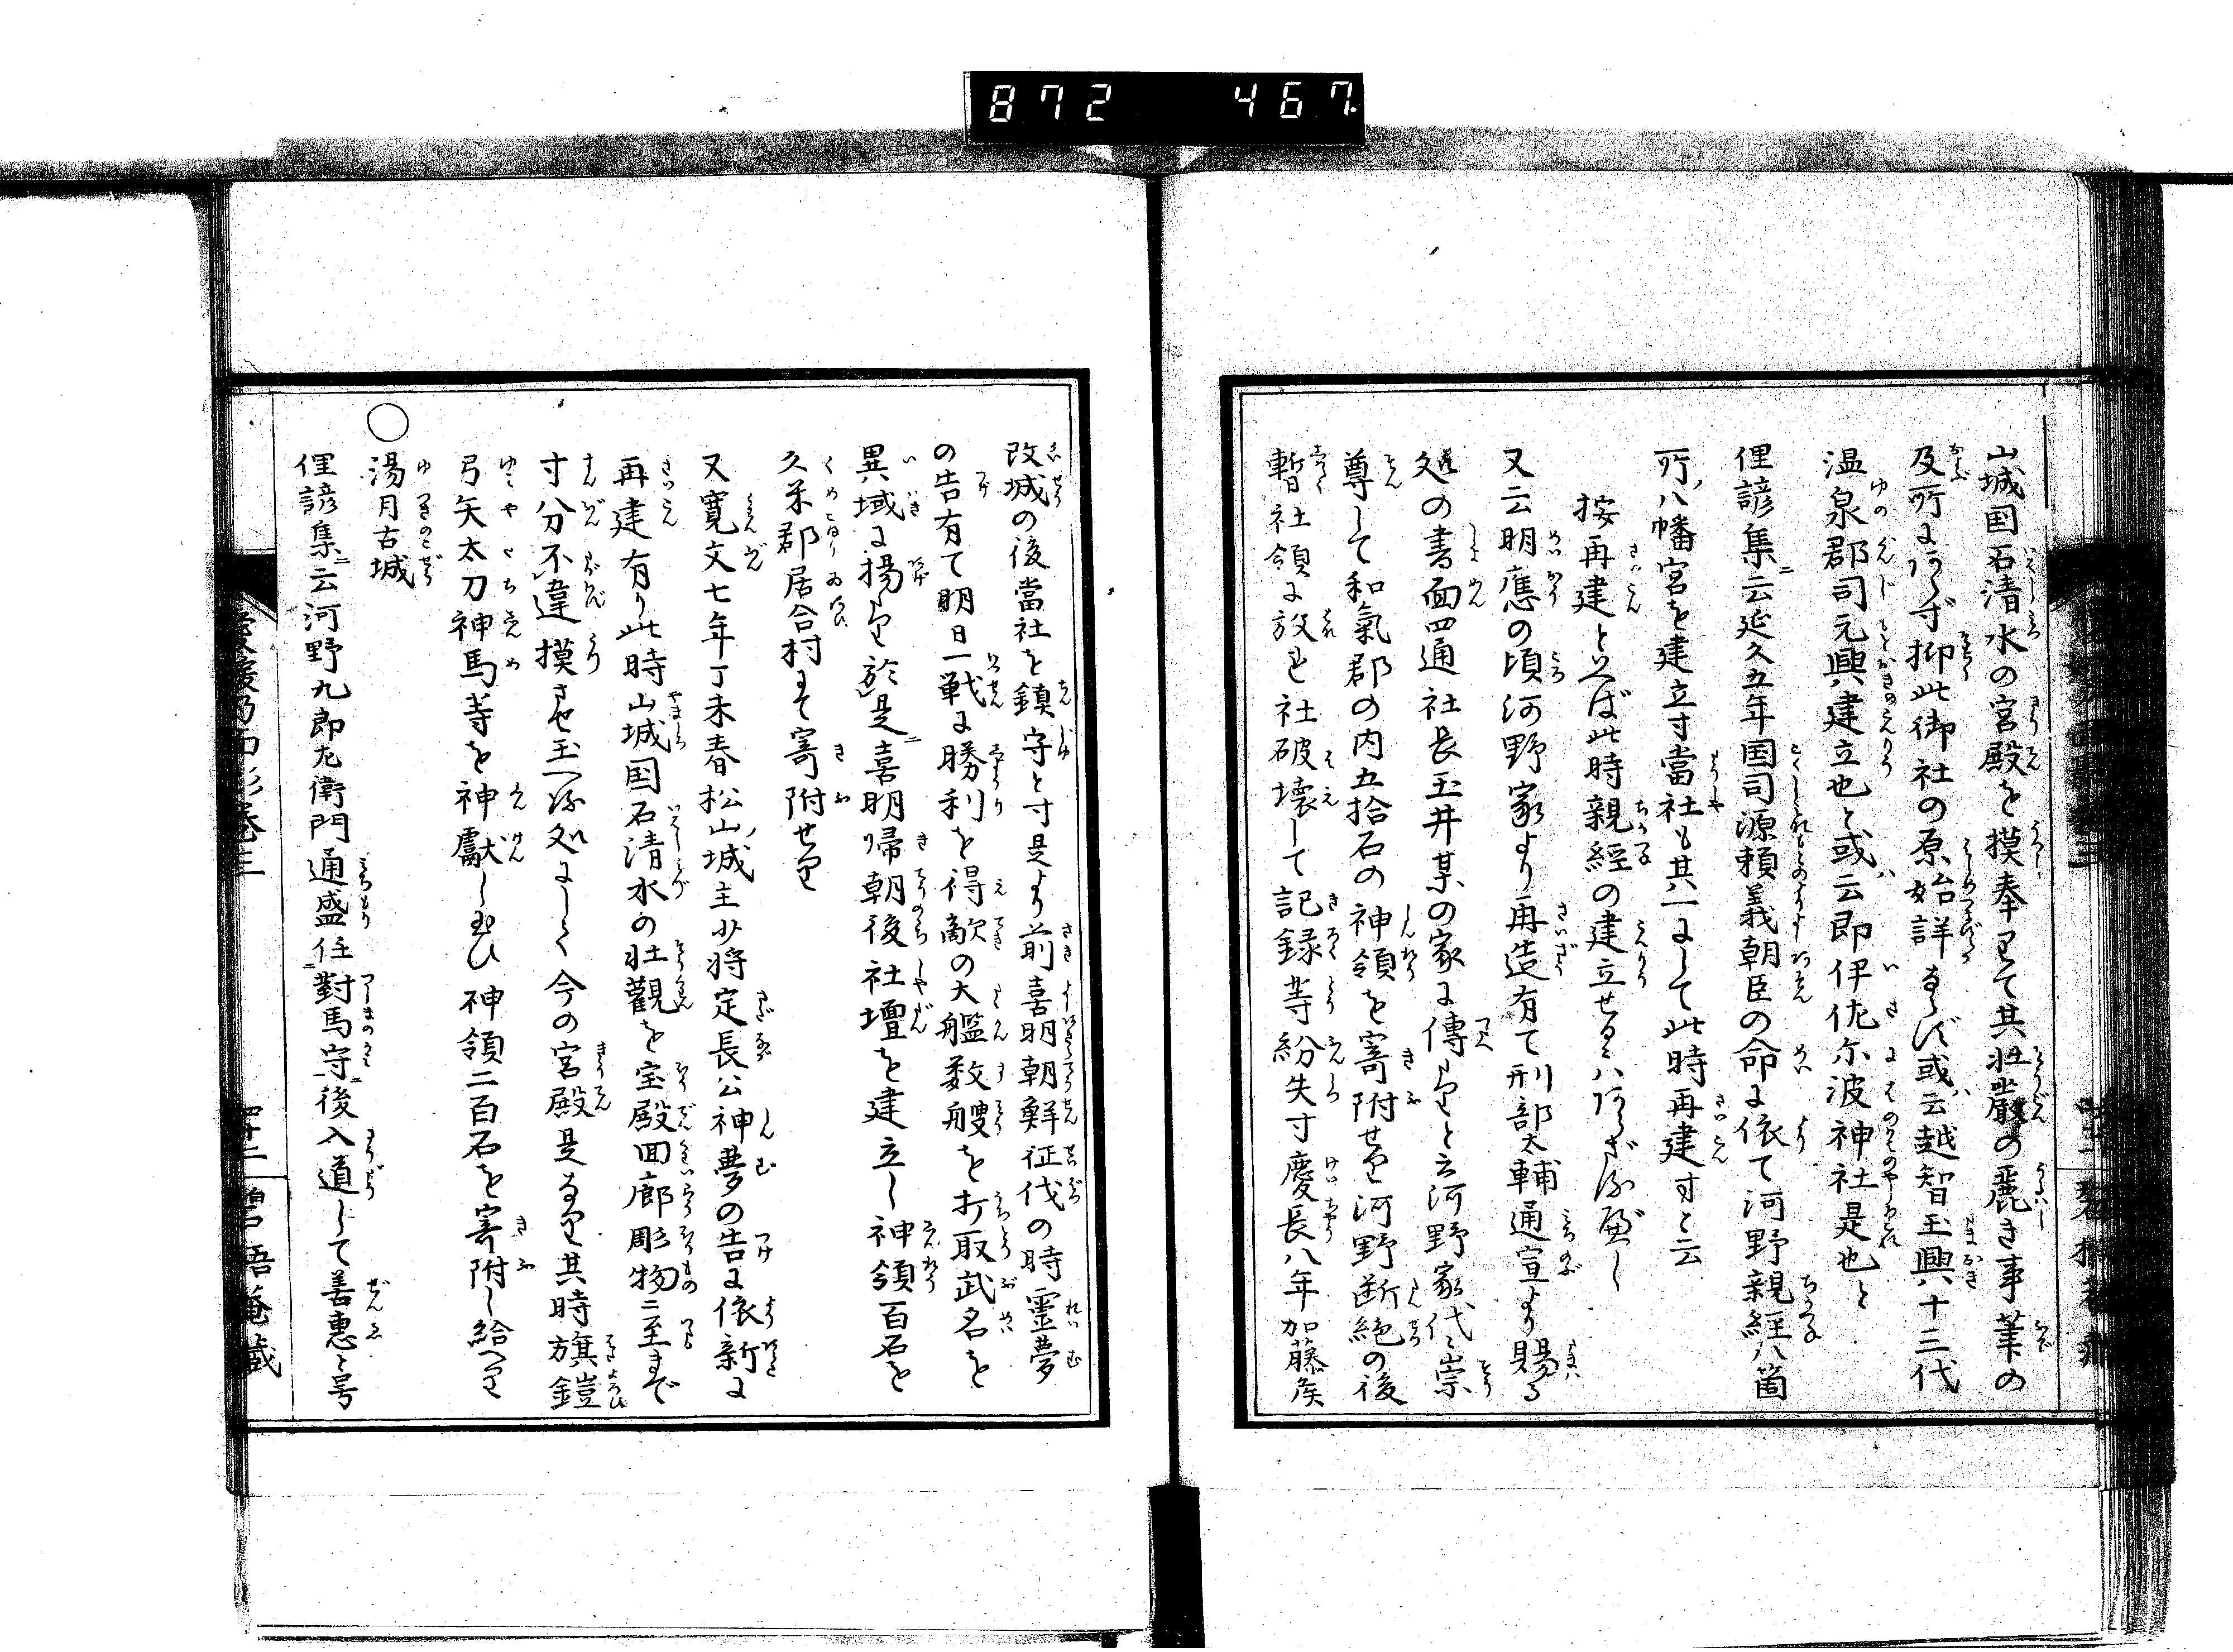 872 467
山城国石清水の宮殿を摸奉りて其壮嚴の麗き事筆の
及所にあらず抑此御社の原始詳ならず或云越智玉興八十三代
温泉郡司元興建立也と或云即伊佐尓波神社是也と
俚諺集ニ云延久五年国司源頼義朝臣の命に依て河野親經八箇
所ノ八幡宮を建立す當社も其一にして此時再建すと云
按再建といへば此時親經の建立せるにハあらざる歟べし
又云明應の頃河野家より再造有て刑部太輔通宣より賜る
処の書面四通社長玉井某の家に傳ふと云河野家代々崇
尊して和氣郡の内五拾石の神領を寄附せり河野断絶の後
暫社領に放れ社破壊して記録等紛失す慶長八年加藤矦
改城の後當社を鎮守と寸是より前喜明朝鮮征伐の時靈夢
の告有て明日一戦に勝利を得敵の大艦数艘を打取武名を
異域に揚たり於是ニ喜明帰朝後社壇を建立し神領百石を
久米郡居合村にて寄附せり
又寛文七年丁未春松山ノ城主少将定長公神夢の告に依新に
再建有り此時山城国石清水の壮觀を宝殿回廊彫物ニ至まで
寸分不違摸させ玉へる処にして今の宮殿是なり其時旗鎧
弓矢太刀神馬等を神獻し玉ひ神領二百石を寄附し給へり
○
湯月古城
俚諺集ニ云河野九郎左衛門通盛任ニ對馬守ニ後入道して善惠と号
愛媛乃面影巻三
四十二
碧梧菴藏